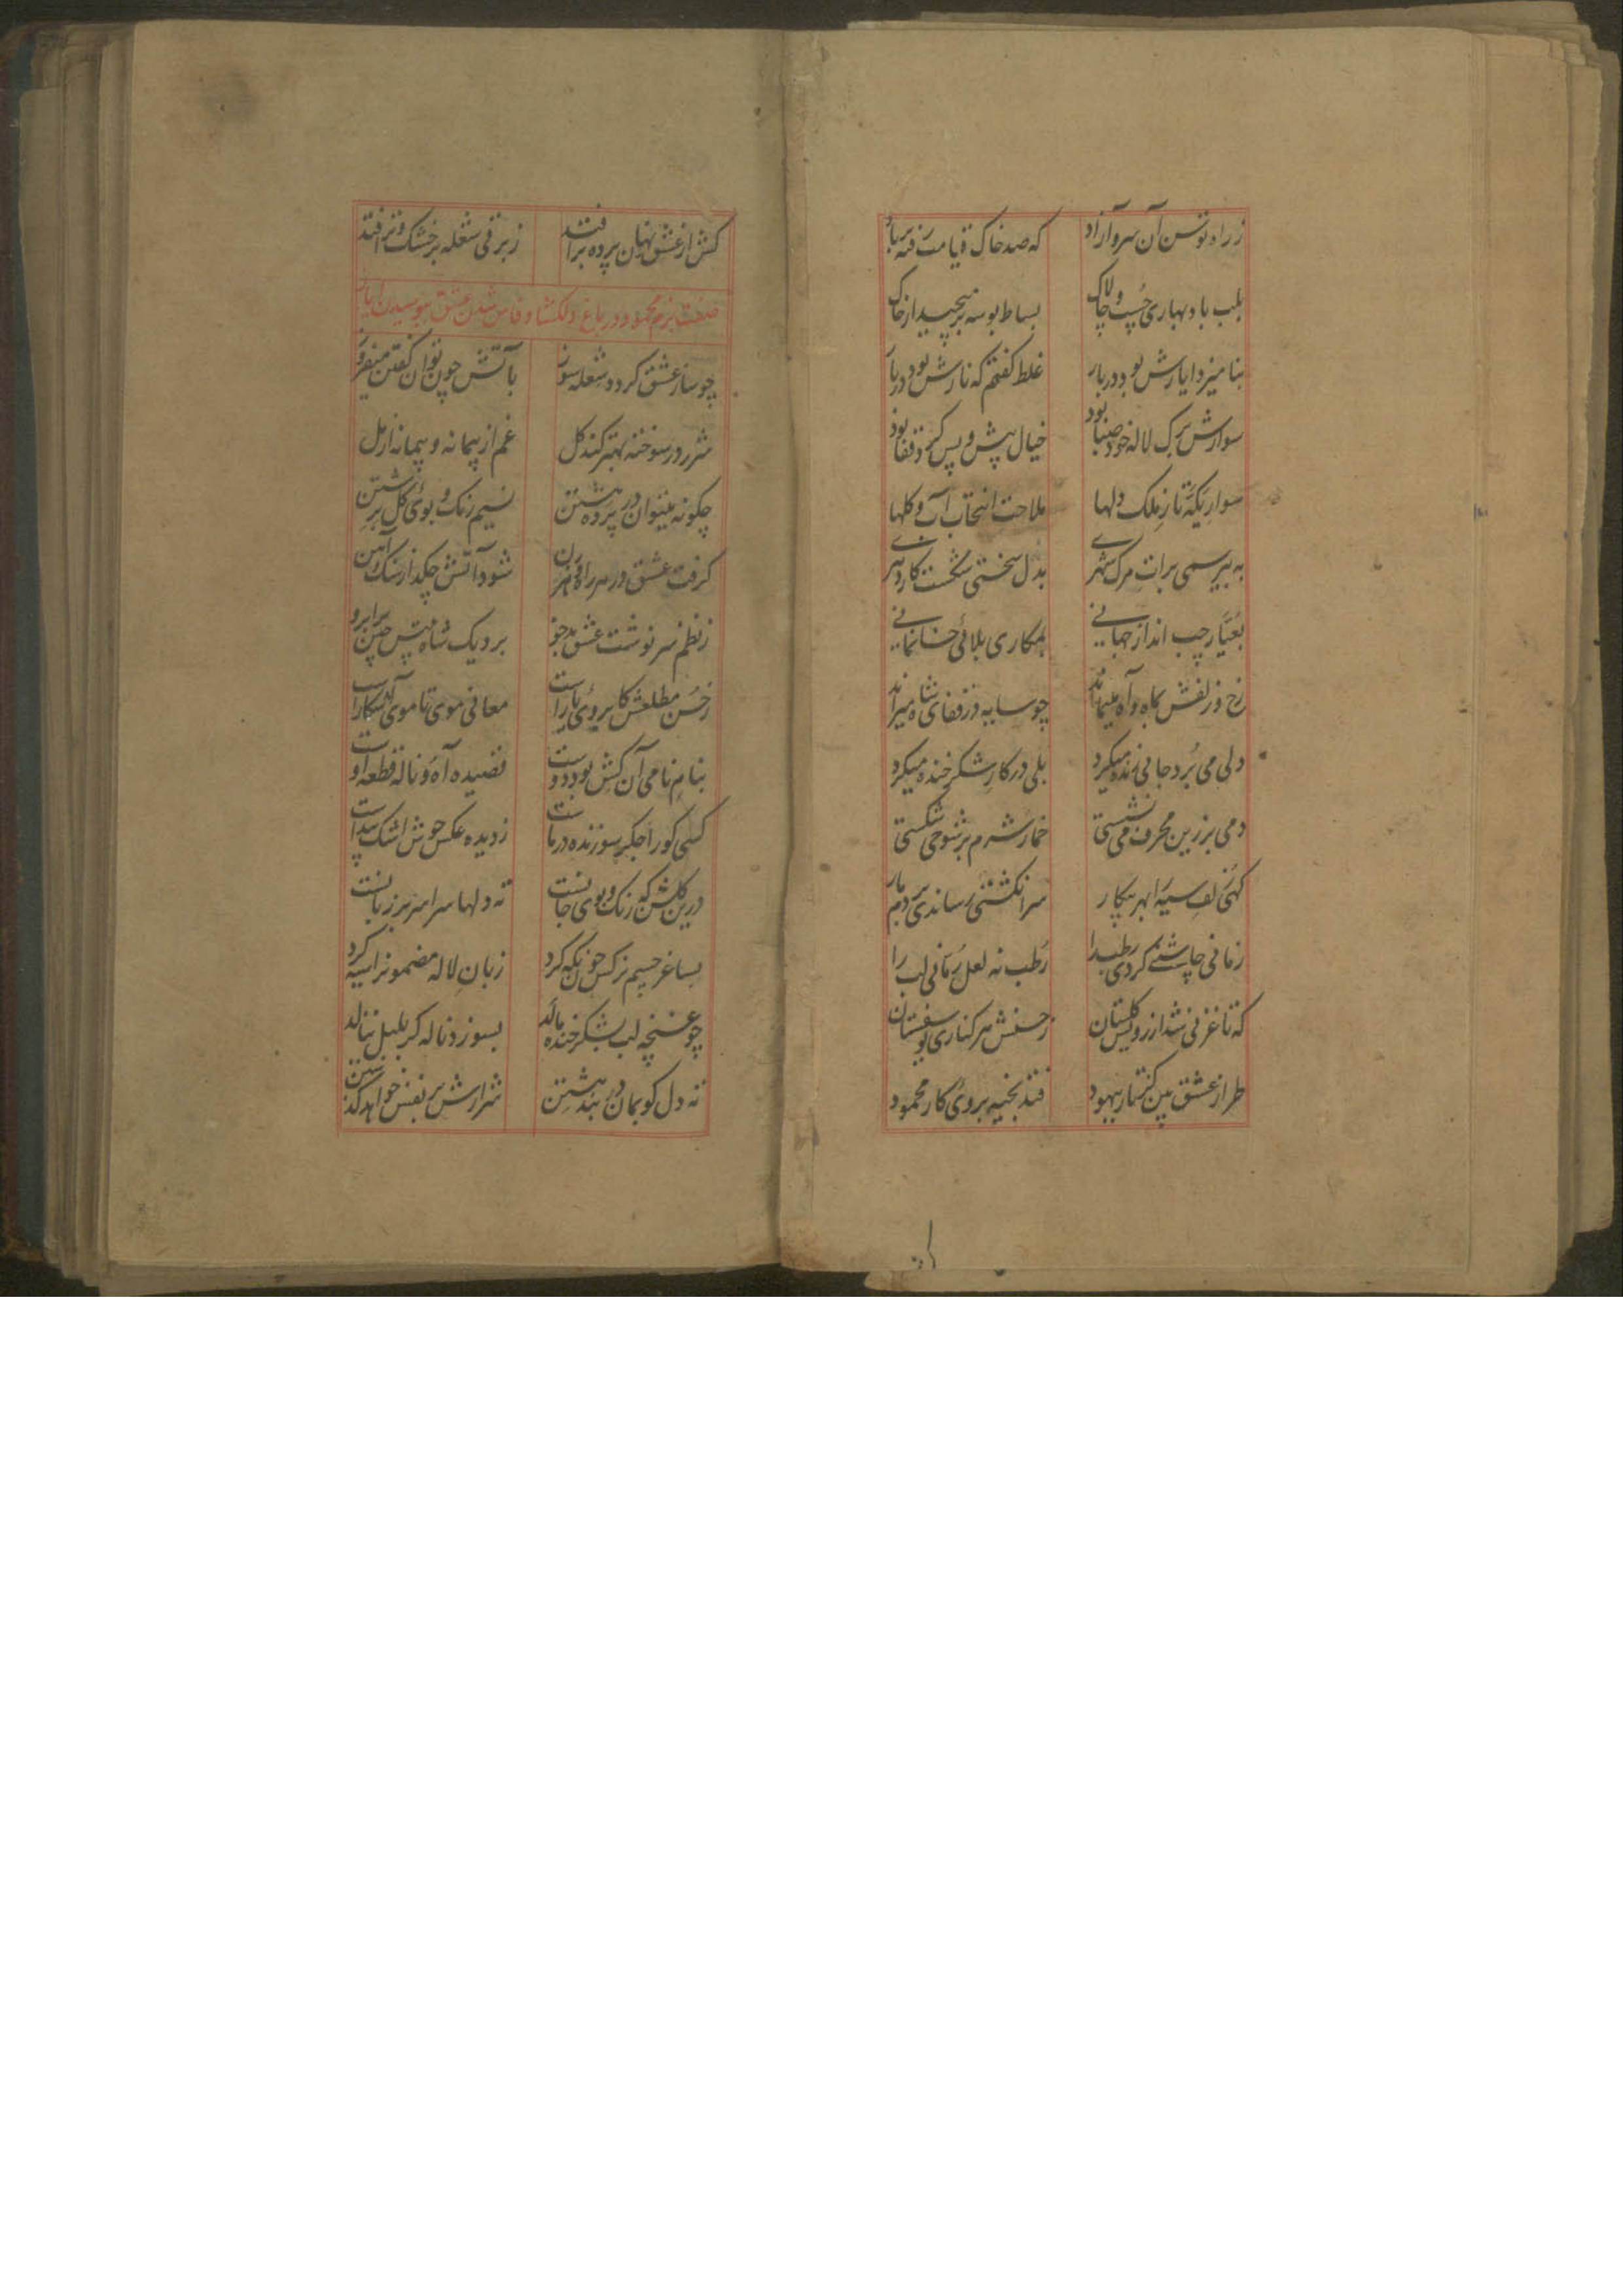 ز راه توسن آن سرو آزاد که صد خاک قیامت رفته بر باد
بلب باد بهاری چُست و چالاک بساط بوسه بر میچید از خاک
بنامیزد ایازش بود در بار غلط گفتم که نازش بود در بار
سوارش برک لاله خود صبا بود خیال پیش و پس کرد قفا بود
سوار یکّه تاز ملک دلها ملاحت انتخاب آب و کلها
به بیرسمی برات مرک شهری بدل سختی شکست کار دهری
بعیّار چپ انداز جهانی بمکاری بلائی خانمانی
رخ و زلفش بماه و آه میماند چو سایه در قفای شاه میراند
دلی می بُرد جانی زنده میکرد بلی در کار شکر خنده میکرد
دمی بر زین محرف می نشستی خمار شرم بر شوخی شکستی
کهی زلف سیه را بهر پیکار سر انکشتی رساندی بر دم مار
زمانی چاشنی کردی رطب را رُطب نه لعل رُمّانی لب را
که تا غزنی شد از رویش کلستان ز حسنش هر کناری یوسفستان
طراز عشق بین کز تار بهبود فتد بخیه بروی کار محمود
کش از عشق نهان پرده بر افتد ز برقی شعله بر خشک و تر افتد
صفت بزم محمود در باغ دلکشا و فاش شدن عشق ببوسیدن ایاز
چو ساز عشق کردد شعله سوز بآتش چون توان کفتن میفروز
شرر در سوخته بهتر کند کل غم از پیمانه و پیمانه از مل
چکونه میتوان در پرده هشتن نسیم رنک و بوی کل سرشتن
کرفت عشق در هر راه و هر فن شود آتش چکد از سنک و آهن
ز نظم سرنوشت عشق بدخو برد یک شاه بیتش چین ابرو
ز حُسن مطلعش کابروی یار است معانی موی تا موی آشکار است
بنام نامی آن کش بود دوست قصیده آه و ناله قطعه اوست
کسی کو را جکر سوزنده در ماست ز دیده عکس جوش اشک پیداست
درین کلشن که رنک و بوی جانست ته دلها سراسر بر زبانست
بساغر چشم نرکس چون نکه کرد زبان لاله مضمونرا سیه کرد
چو غنچه لب بشکر خنده مالد بسوزد ناله کر بلبل ننالد
ته دل کو بمان در بند هشتن شرارش بر نفس خواهد کذشتن